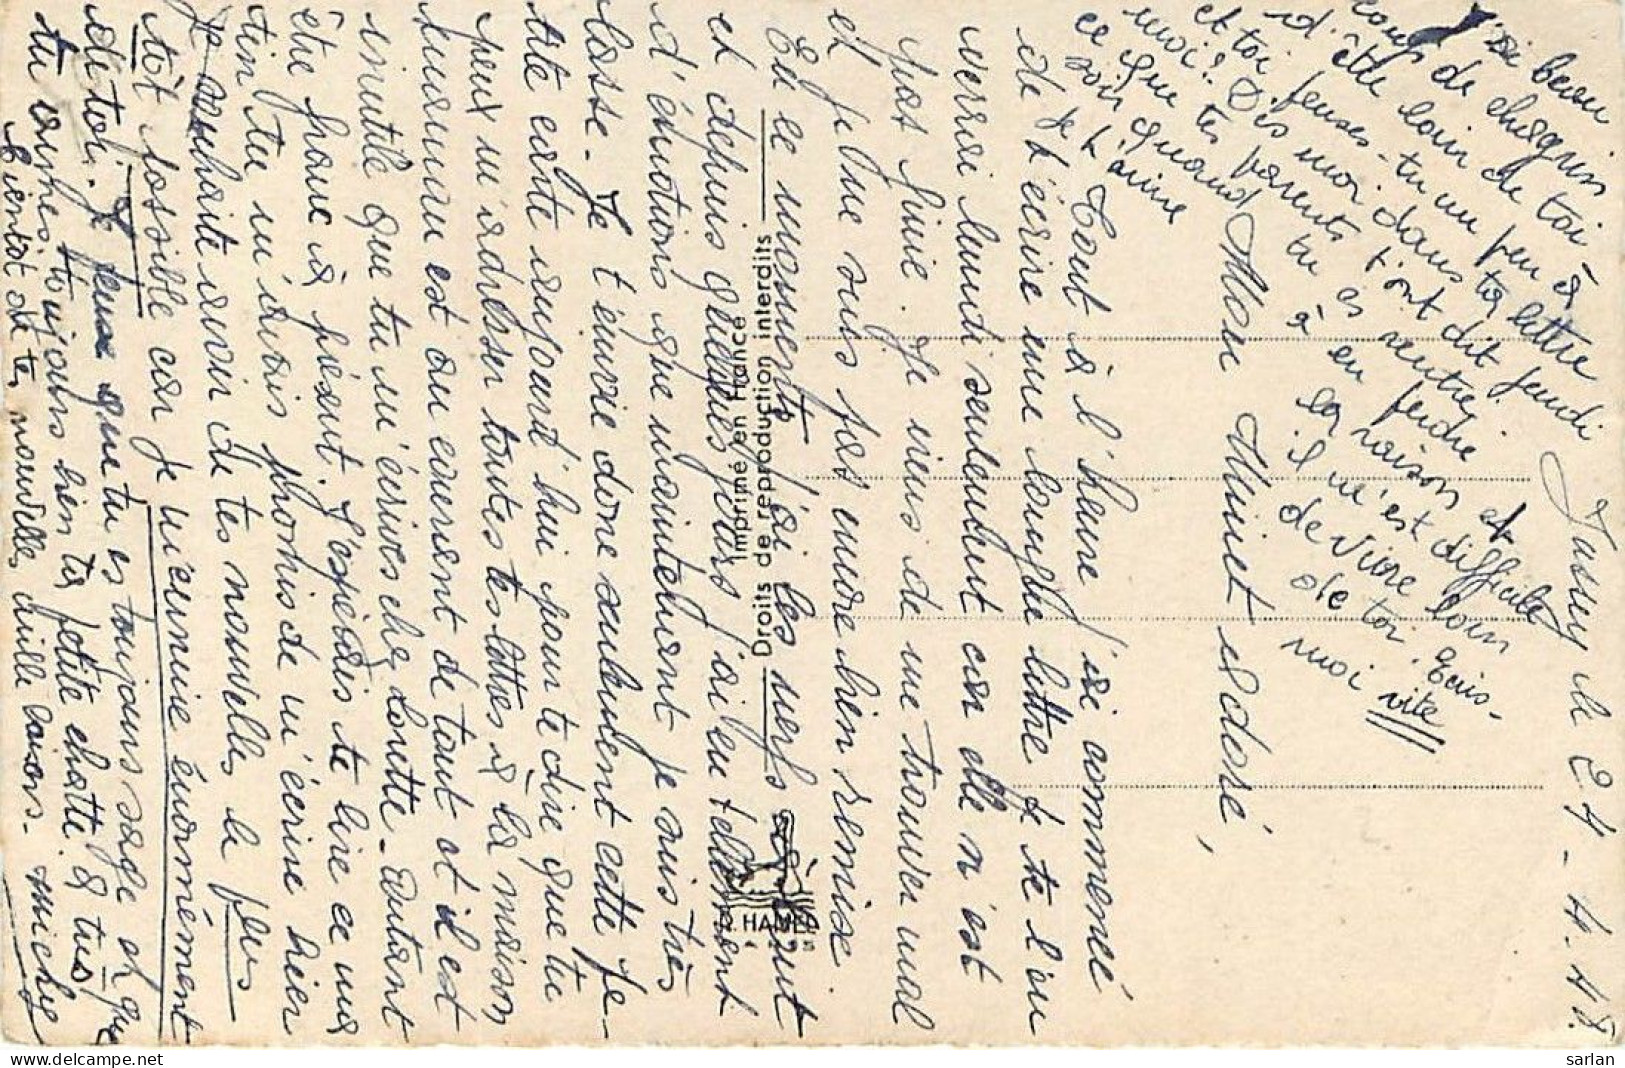 Jussey le 24-4-48.
Mon Minet adoré,
Tout à l'heure j'ai commencé
de t'écrire une longue lettre je te l'en
verrai lundi seulement car elle n'est
pas finie. Je viens de me trouver mal
et je ne suis pas encore bien remise
En ce moment j'ai les nerfs à bout
et depuis quelques jours j'ai eu tellement
d'émotions que maintenant je suis très
lasse. Je t'envoie donc seulement cette pe-
tite carte aujourd'hui pour te dire que tu
peux m'adresser toutes tes lettres à la maison
maman est au courant de tout et il est
inutile que tu m'écrives chez Lorette. Autant
être franc à présent. J'espérais te lire ce ma
tin tu m'avais promis de m'écrire hier
Je souhaite avoir de tes nouvelles le plus
tôt possible car je m'ennuie énormément
de toi. Je pense que tu es toujours sage et que
tu aimes toujours bien ta petite chatte. à tus
Bientôt de tes nouvelles mille baisers. Michey
J'ai beau
coup de chagrin
d'être loin de toi
et toi penses-tu un peu à
moi? Dis moi dans ta lettre
ce que tes parents t'ont dit jeudi
soir quand tu es rentré.
Je t'aime à en perdre
la raison et
il m'est difficile
de vivre loin
de toi. Ecris-
moi vite
Imprimé en France
Droits de reproduction interdits
sarlan